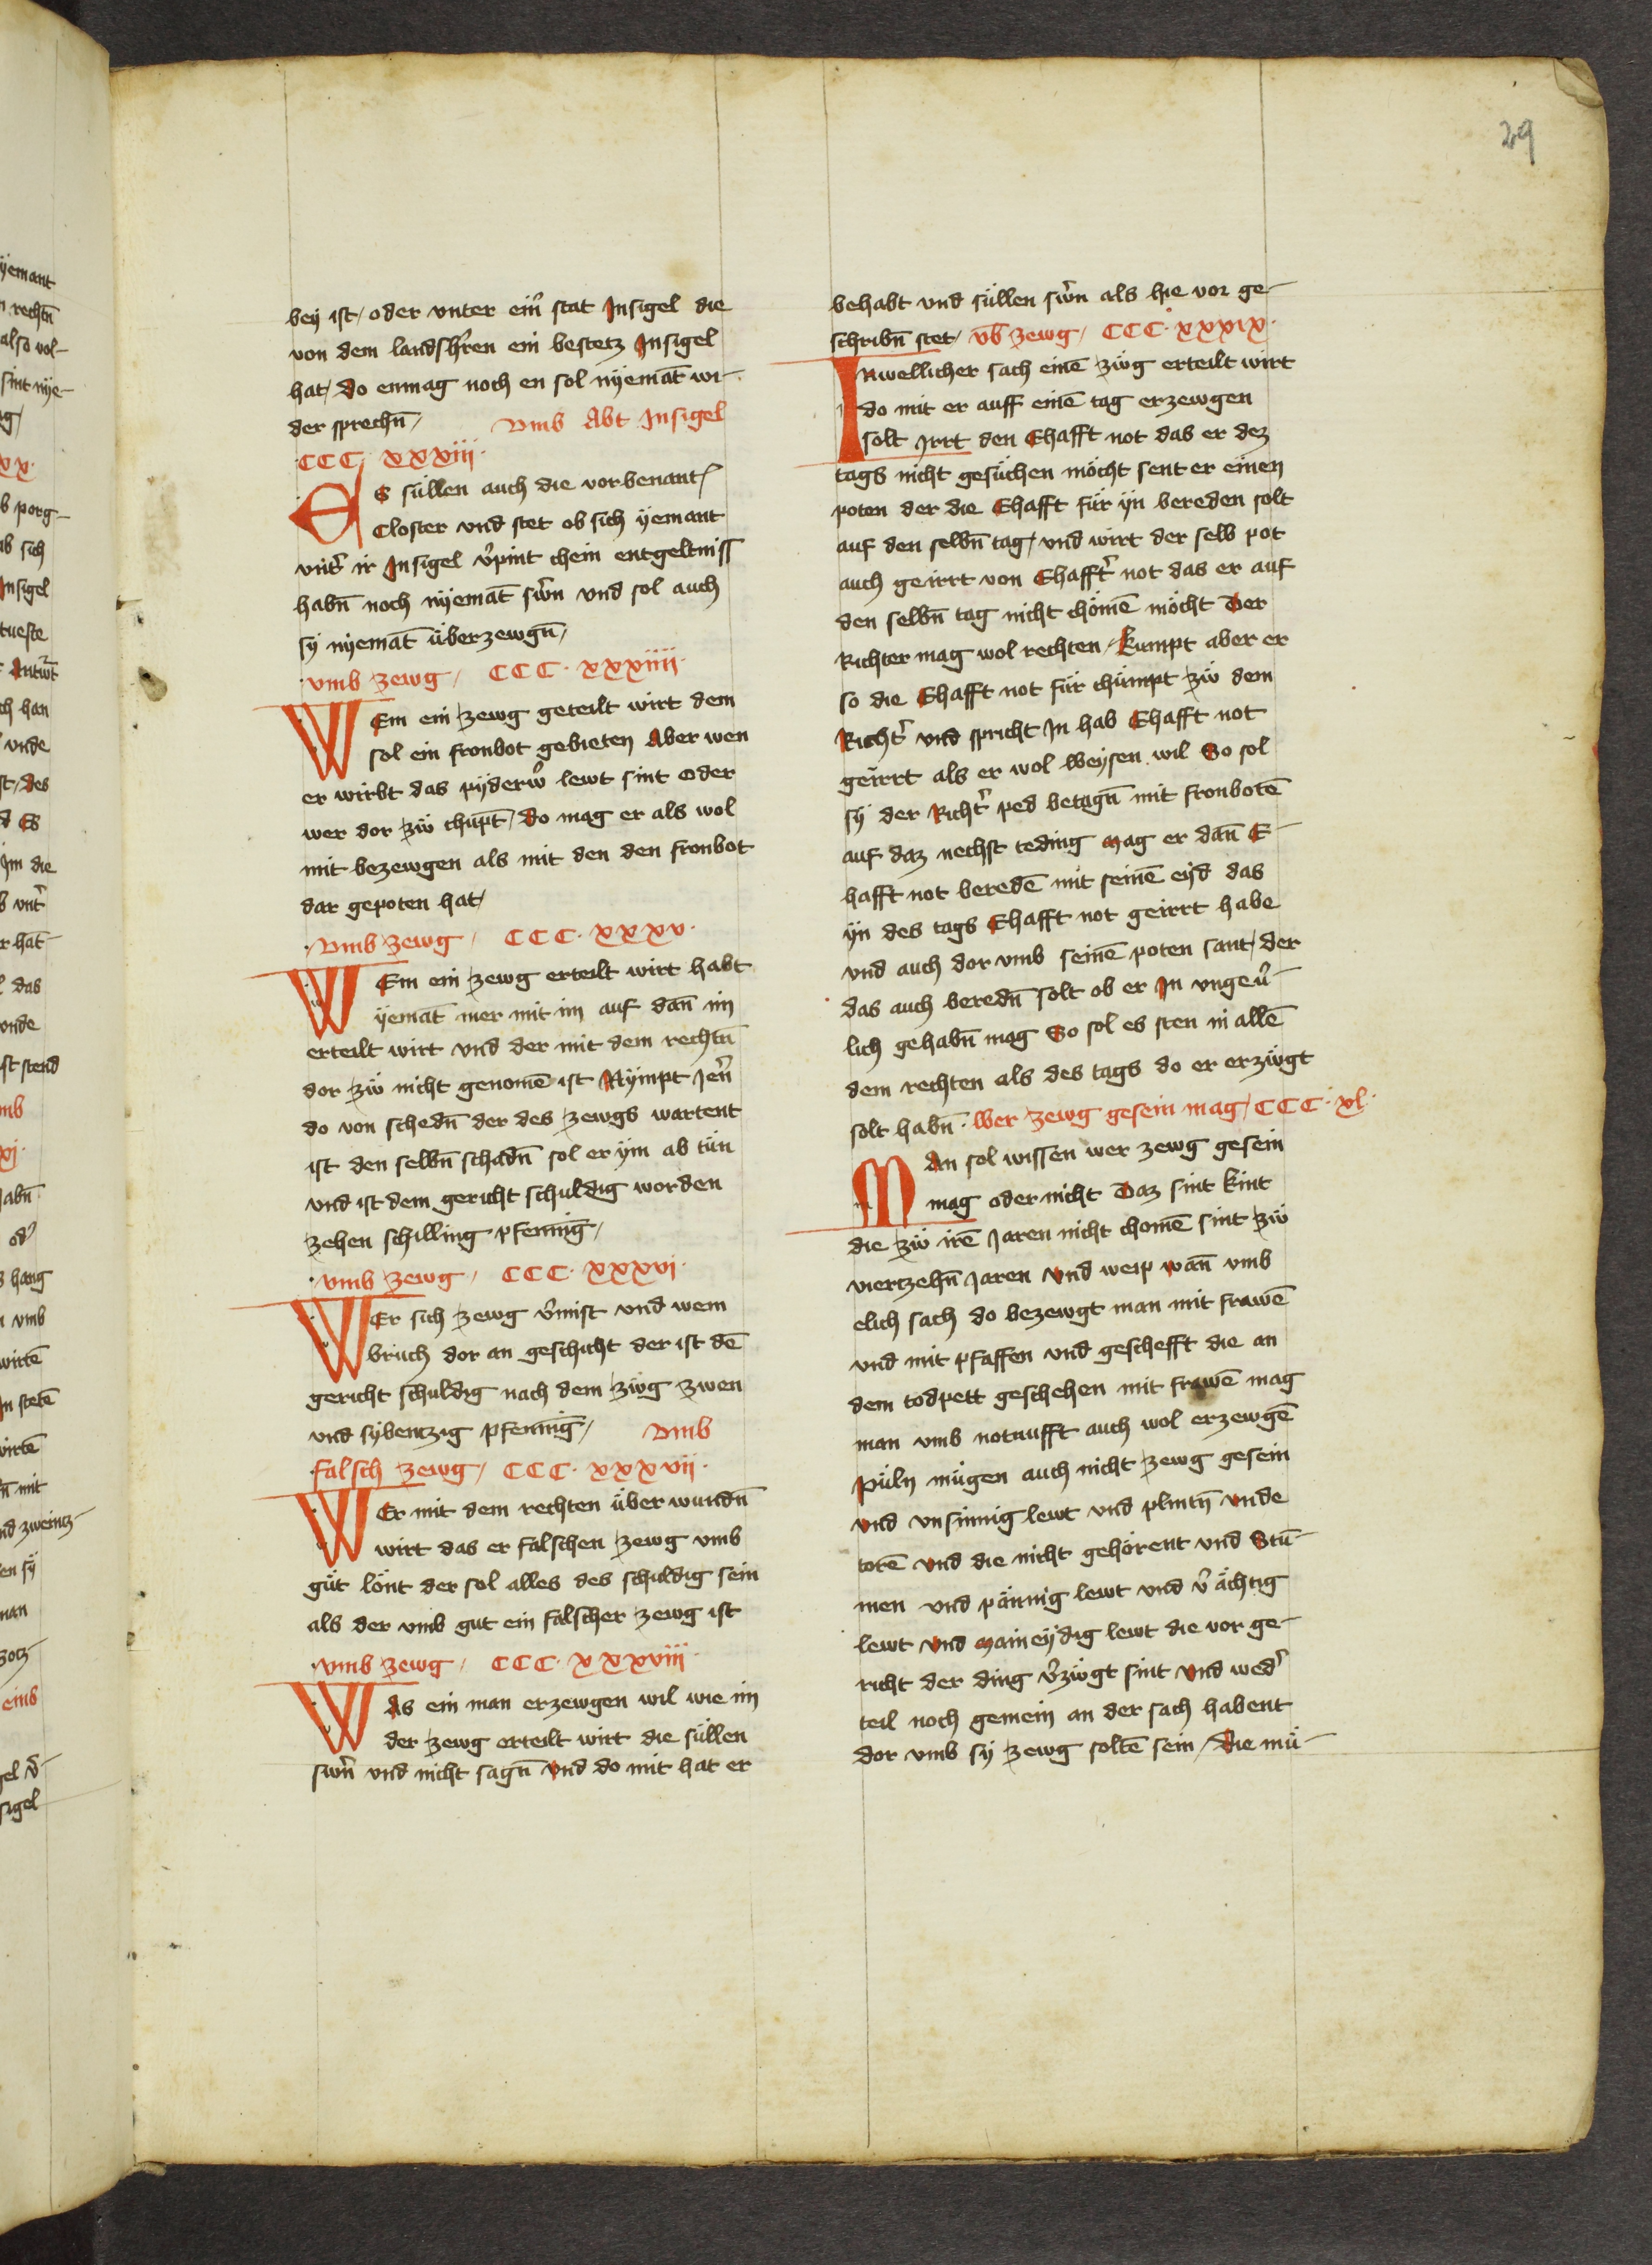 29
bey ist / oder vnter ein̉ stat Insigel die
von dem landsh̉ren ein bestetz Insigel
hat / do enmag noch en sol nyemāt wi-
der sprechn̄ / Vmb Abt Insigel
CCC xxxiij
Es süllen auch die vorbenant
Closter vnd stet ob sich yemant
vnt̉ ir Insigel v̉pint chein entgeltniss
habn̄ noch nyemāt sw̉n vnd sol auch
sy nyemāt überzewgn̄ /
vmb zewg / CCC · xxxiiij ·
WEm ein zewg geteilt wirt dem
sol ein fronbot gebieten Aber wen
er wirbt das pyderw̉ lewt sint oder
wer dor zw̎ chūpt / do mag er als wol
mit bezewgen als mit den den fronbot
dar gepoten hat /
Vmb zewg / CCC · xxxv ·
WEm ein zewg erteilt wirt habt
yemāt mer mit im auf dan̄ im
erteilt wirt vnd der mit dem rechtn̄
dor zw̎ nicht genomē ist Nympt Jen̉
do von schedn̄ der des zewgs wartent
ist den selbn̄ schadn̄ sol er ym ab tün
vnd ist dem gericht schuldig worden
zehen schilling pfennīg /
vmb zewg / CCC · xxxvi ·
WEr sich zewg v̉mist vnd wem
bruch dor an geschicht der ist dē
gericht schuldig nach dem zw̎g zwen
vnd sybentzig pfennīg / Vmb
falsch zewg / CCC · xxxvij ·
WEr mit dem rechten über wundn̄
wirt das er falschen zewg vmb
güt lönt der sol alles des schuldig sein
als der vmb gut ein falscher zewg ist
vmb zewg / CCC · xxxviij ·
WAs ein man erzewgen wil wie im
der zewg erteilt wirt die süllen
swn̉ vnd nicht sagn̄ Vnd do mit hat er
behabt vnd süllen sw̉n als hie vor ge-
schribn̄ stet / vb̄ zewg / CCC · xxxix ·
Inwellicher sach einē zw̎g erteilt wirt
do mit er auff einē tag erzewgen
solt Irrt den Ehafft not das er dez
tags nicht gesüchen möcht sent er einen
poten der die Ehafft für yn bereden solt
auf den selbn̄ tag / vnd wirt der selb pot
auch geirrt von Ehafft̉ not das er auf
den selbn̄ tag nicht chömē möcht Der
Richter mag wol rechten / Kumpt aber er
so die Ehafft not für chümpt zw̎ dem
Richt̉ vnd spricht In hab Ehafft not
geirrt als er wol Weysen wil So sol
sy der Richt̉ ped betagn̄ mit fronbotē
auf daz nechst teding Mag er dan̄ E-
hafft not beredē mit seinē eyd das
yn des tags Ehafft not geirrt habe
vnd auch dor vmb seinē poten sant / der
das auch beredn̄ solt ob er In vngeu̎-
lich gehabn̄ mag So sol es sten in allē
dem rechten als des tags do er erzw̎gt
solt habn̄ · Wer zewg gesein mag / CCC · xl ·
MAn sol wissen wer zewg gesein
mag oder nicht Daz sint kint
die zw̎ irē Jaren nicht chomē sint zw̎
viertzehn̄ Jaren Vnd weip wan̄ vmb
elich sach do bezewgt man mit frawē
vnd mit pfaffen vnd geschefft die an
dem todpett geschehen mit frawē mag
man vmb notnufft auch wol erzewgē
Püln mügen auch nicht zewg gesein
Vnd vnsinnig lewt vnd plintn̄ Vnde
torē Vnd die nicht gehörent vnd Stū-
men vnd pännig lewt vnd v̉ ächtig
lewt Vnd maineydig lewt die vor ge-
richt der ding v̉zw̎gt sint Vnd wed̉
teil noch gemein an der sach habent
dor vmb sy zewg soltē sein / die mü-